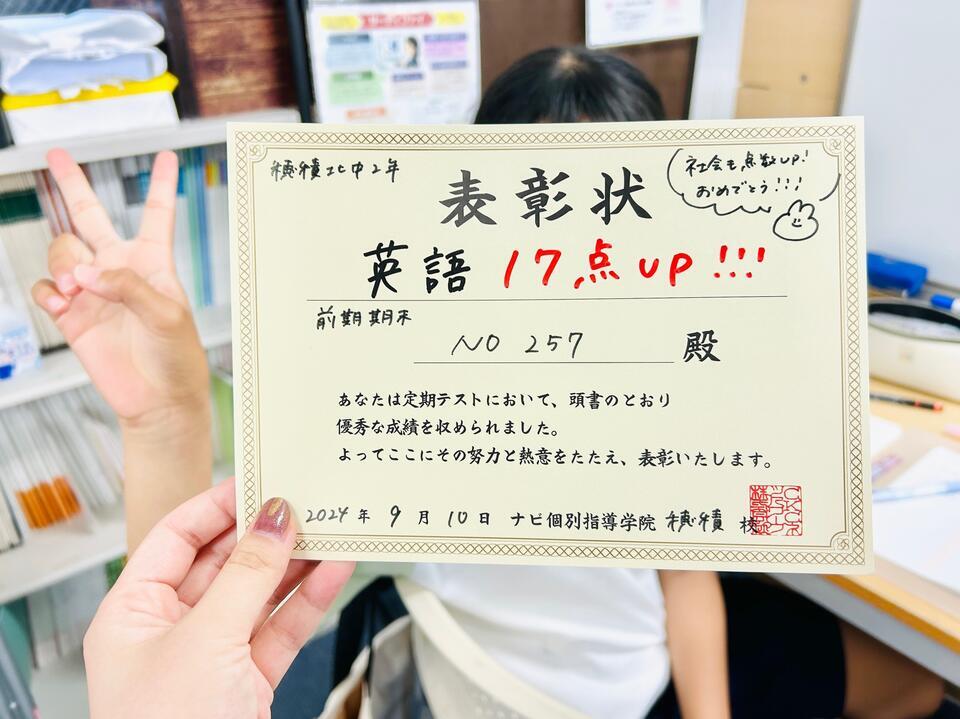 穂積北中2年
表彰状
社会も点数UP!
おめでとう!!!
英語 17点UP!!!
前期期末
NO 257 殿
あなたは定期テストにおいて、頭書のとおり
優秀な成績を収められました。
よってここにその努力と熱意をたたえ、表彰いたします。
2024年 9月 10日 ナビ個別指導学院 穂積 校